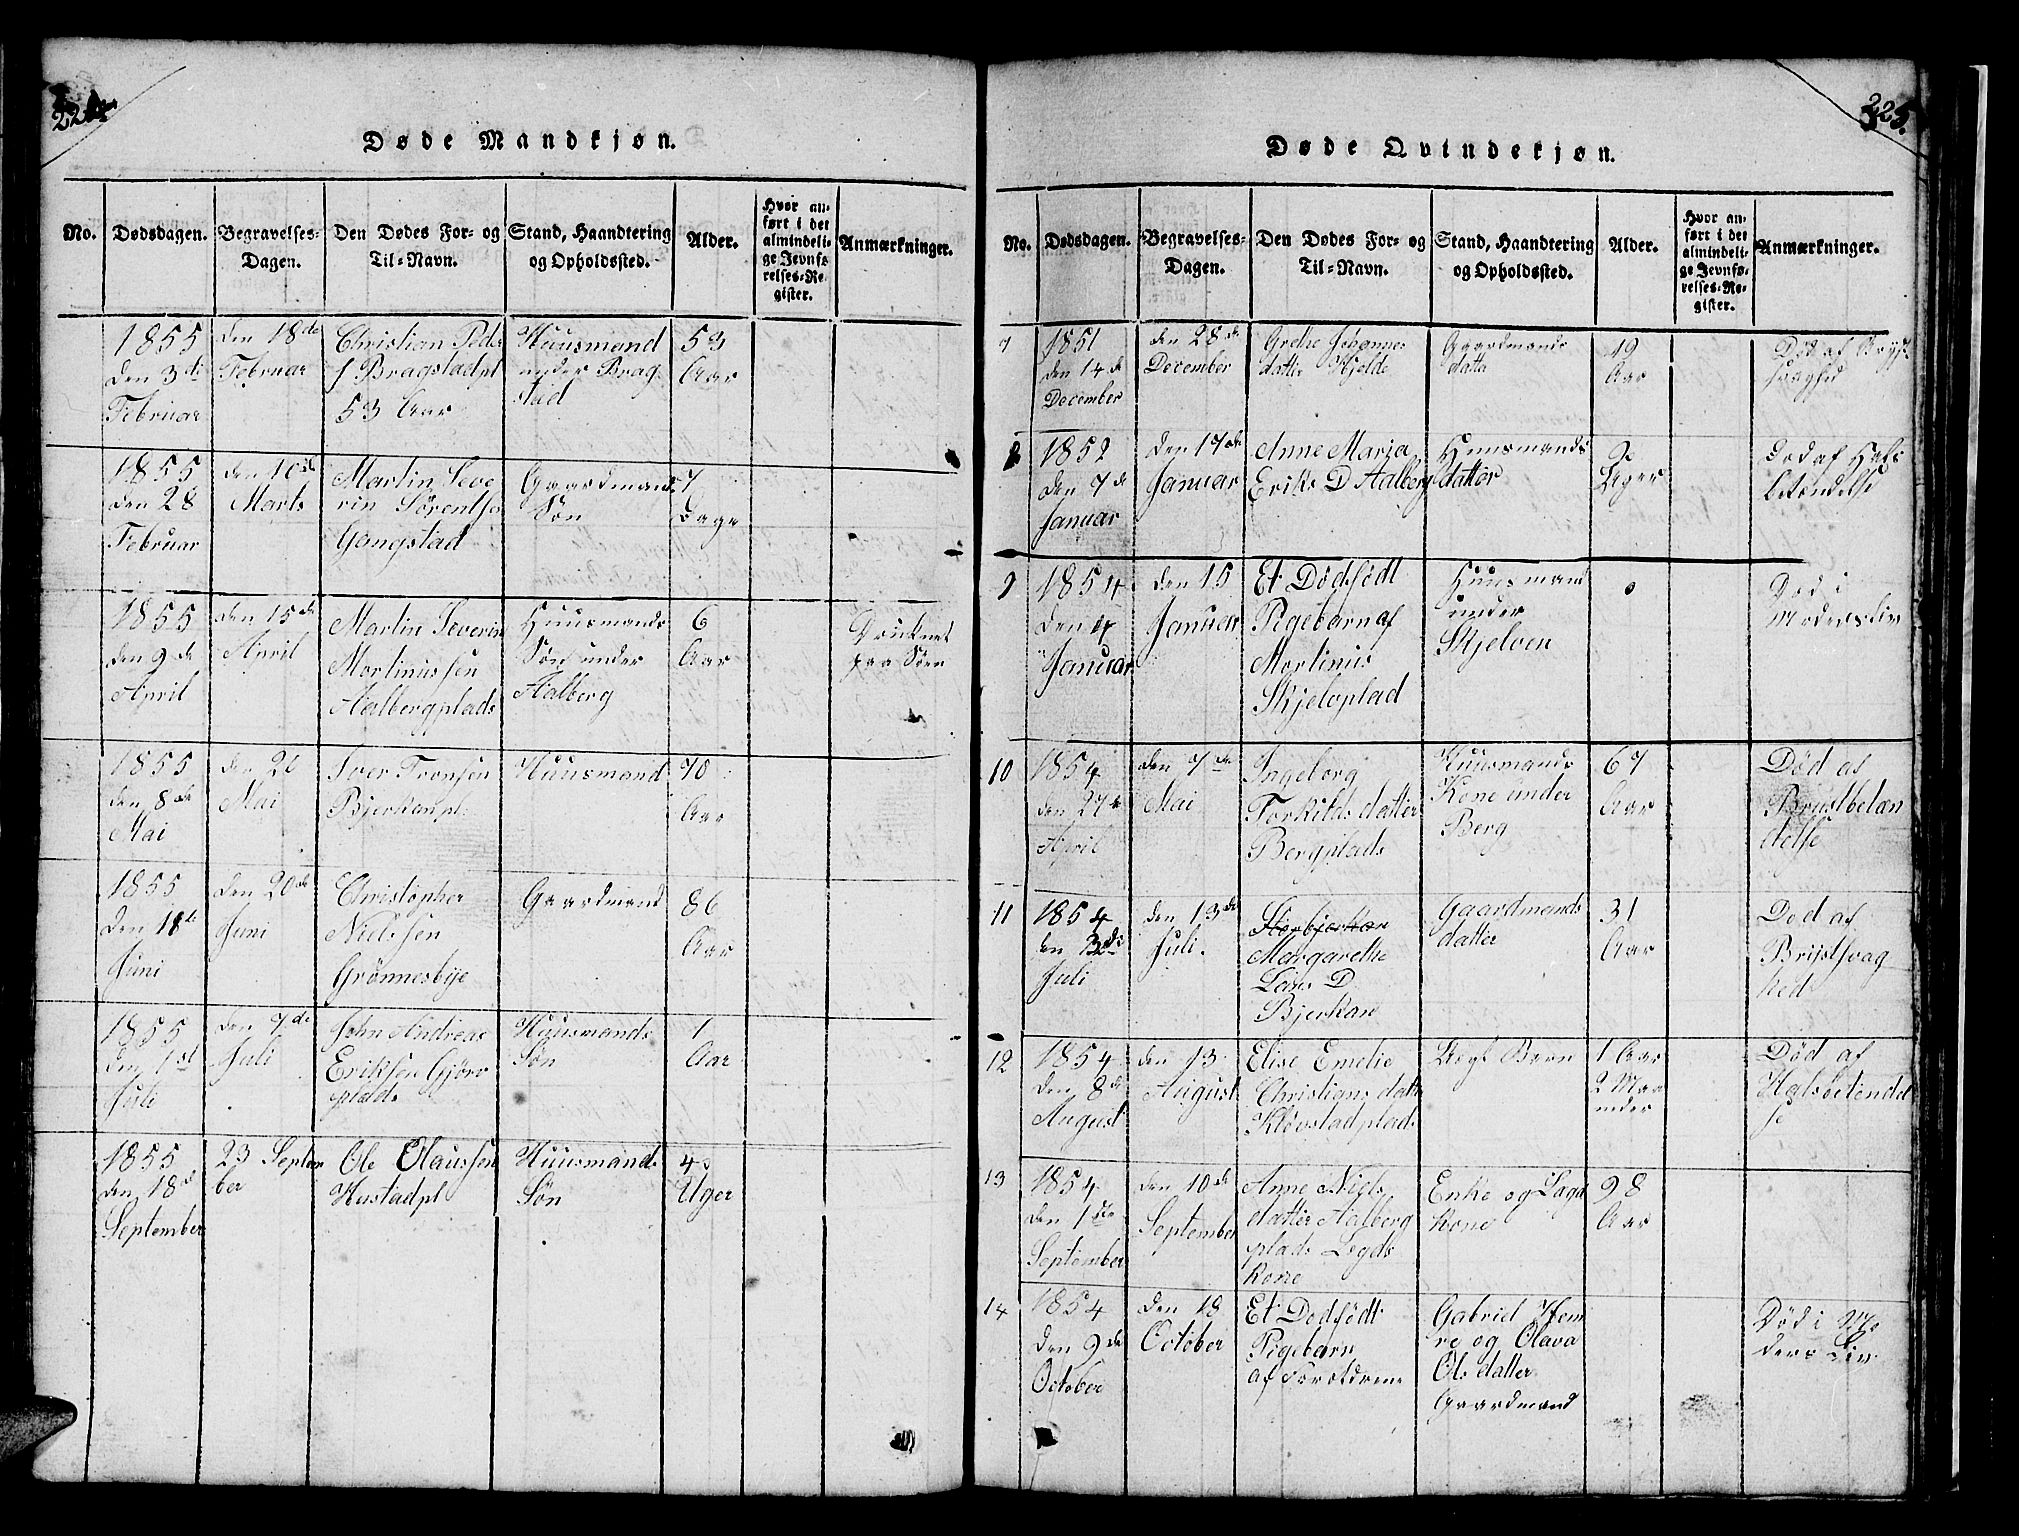 224
Døde Mandkjøn.
No. Dødsdagen. Begravelses-Dagen. Den Dødes For- og Til-Navn. Stand, Haandtering og Opholdssted. Alder. Hvor anført i det almindelige Jevnførelses-Register. Anmærkninger.
1855 den 3di Februar
den 18de Februar
Christian Peds
f Bragstadpl
53 Aar
Huusmand
under Brag
stad
53
Aar
1855
den 28
Februar
den 10de
Marts
Martin Seve
rin Sørentsen
Gangstad
Gaardmands
Søn
7
Dage
1855
den 9de
April
den 15de
April
Martin Severin
Mortinussen
Aalbergplads
Huusmands
Søn under
Aalberg
6
Aar
Drucknet
paa Søen
1855
den 8de
Mai
den 20
Mai
Iver Tronsen
Bjerkanpl:
Huusmand
70
Aar
1855
den 11de
Juni
den 20de
Juni
Christopher
Nielssen
Grønnesbye
Gaardmand
86
Aar
1855
den 1st
Juli
den 7de
Juli
John Andreas
Eriksen Gjørv
plads
Huusmands
Søn
1
Aar
1855
den 18d
September
23 Septem
ber
Ole Olaussen
Hustadpl
Huusmands
Søn
4
Uger
225.
Døde Qvindekjøn.
No. Dødsdagen. Begravelses-Dagen. Den Dødes For- og Til-Navn. Stand, Haandtering og Opholdssted. Alder. Hvor anført i det almindelige Jevnførelses-Register. Anmærkninger.
7
1851
den 14de
December
den 28de
December
Grethe Johannes
datter Hjelde
Gaardmands
datter
49
Aar
Død af Bryst
svaghed
8
1852
den 7de
Januar
den 17de
Januar
Anne Maria
Eriks D Aalberg
Huusmands
datter
9
Uger
Død af Hals
betændelse
9
1854
den 4
Januar
den 15
Januar
Et Dødfødt
Pigebarn af
Mortinus
Skjelvplad
Huusmand
under
Skjelven
0
Død i
Modersliv
10
1854
den 27de
April
den 7de
Mai
Ingeborg
Torkilds datter
Bergplads
Huusmands
Kone under
Berg
67
Aar
Død af
Brustbetæn
delse
11
1854
den 3di
Juli
den 13de
Juli.
Storbjerkan
Margarethe
Lars D
Bjerkan
Gaardmands
datter
31
Aar
Død af
Brystsvag
hed
12
1854
den 8de
August
den 13
August
Elise Emelie
Christians datter
Kløvstadplads
Uegt Barn
1 Aar
2 Maa
neder
Død af
Halsbetendel
se
13
1854
den 1ste
September
den 10de
September
Anne Niels
datter Aalberg
plads Legds
kone
Enke og Lægd
kone
98
Aar
14
1854
den 9de
October
den 18
October
Et Dødfødt
Pigebarn
af Forældrene
Gabriel Hem
re og Olava
Ols datter
Gaardmand
Død i Mo
ders Liv